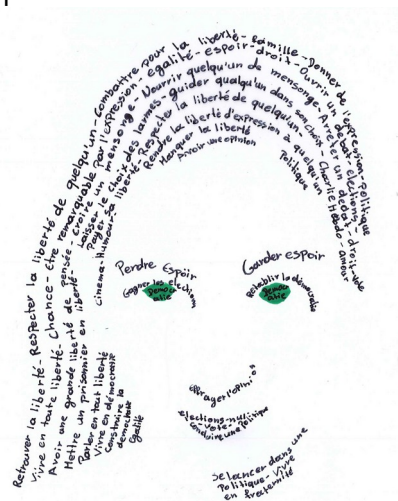 Retrouver la liberté - Respecter la liberté de quelqu'un - Combattre pour la liberté - famille - Donner de l'expression - politique
Vivre en toute liberté - Chance - Etre remarquable par l'expression - égalité - espoir - droit - Ouvrir un débat - élections - droit - vote
Avoir une grande liberté de pensée - croire un mensonge - Nourrir quelqu'un de mensonge - Arrête un débat
Mettre un prisonnier en liberté - Laisser le choix des larmes - guider quelqu'un dans son choix - Charlie Hebdo - amour
Parler en tout liberté
Vivre en démocratie
Construire la
democratie
Egalité
cinema - Humour - Se liberté - Respecter la liberté de quelqu'un
Payer
Rendre la liberté d'expression a quelqu'un
Manquer la liberté
Avoir une opinion
Politique
Perdre Espoir
Gagner les elections
Democr
atie
Garder espoir
Rétablir la démocratie
Democr
atie
elections - nul
- vote -
conduire une politique
Se lancer dans une
Politique - Vivre
en fraternité